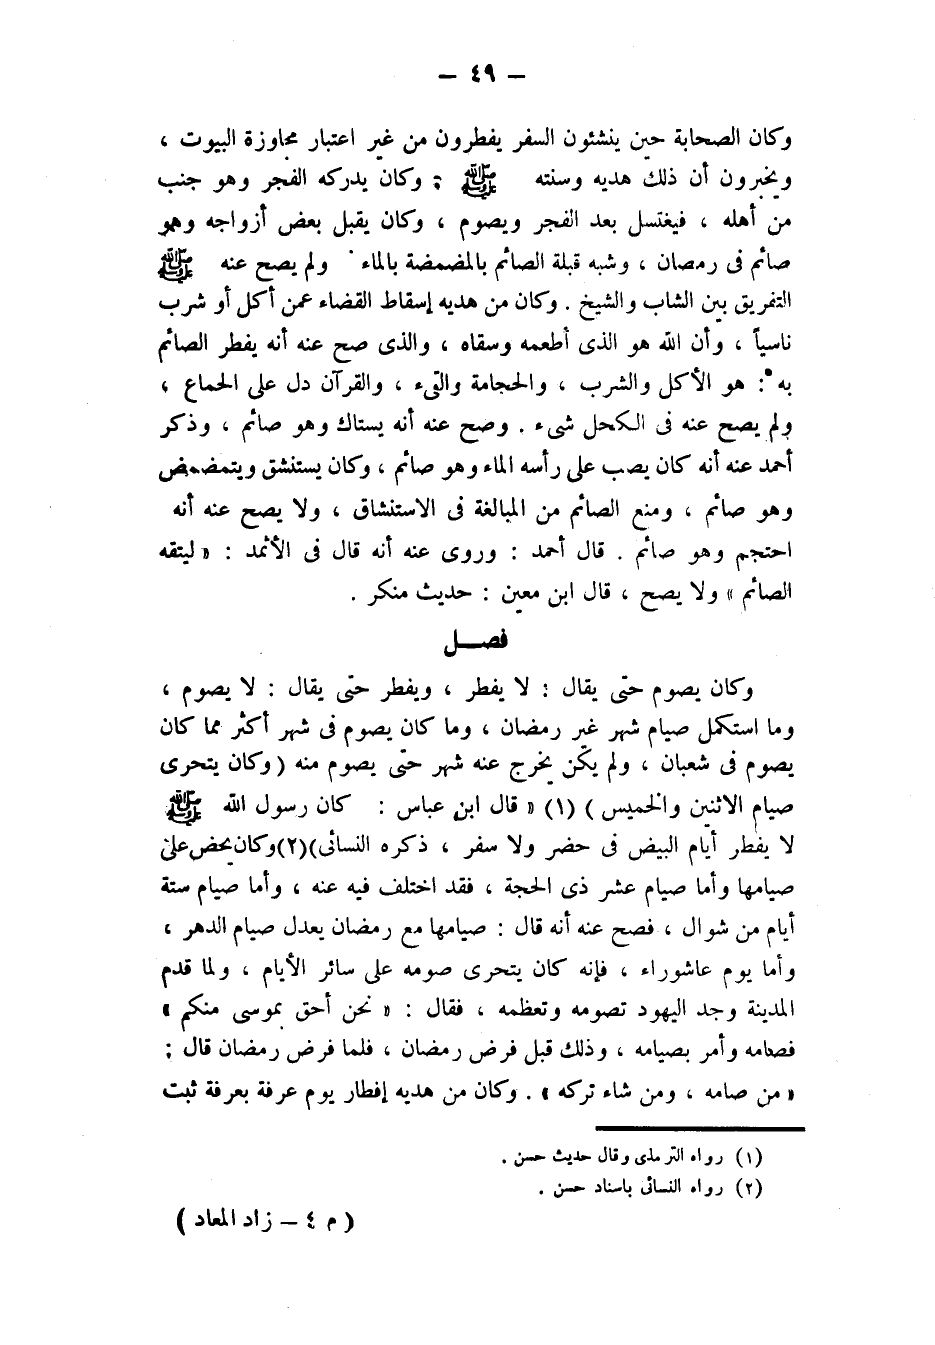 – ٤٩ –
وكان الصحابة حين ينشئون السفر يفطرون من غير اعتبار مجاوزة البيوت ،
ويخبرون أن ذلك هديه وسنته ﷺ ؛ وكان يدركه الفجر وهو جنب
من أهله ، فيغتسل بعد الفجر ويصوم ، وكان يقبل بعض أزواجه وهو
صائم فى رمضان ، وشبه قبلة الصائم بالمضمضة بالماء ٠ ولم يصح عنه ﷺ
التفريق بين الشاب والشيخ . وكان من هديه إسقاط القضاء عمن أكل أو شرب
ناسياً ، وأن الله هو الذى أطعمه وسقاه ، والذى صح عنه أنه يفطر الصائم
به : هو الأكل والشرب ، والحجامة والقىء ، والقرآن دل على الجماع ،
ولم يصح عنه فى الكحل شىء . وصح عنه أنه يستاك وهو صائم ، وذكر
أحمد عنه أنه كان يصب على رأسه الماء وهو صائم ، وكان يستنشق ويتمضمض
وهو صائم ، ومنع الصائم من المبالغة فى الاستنشاق ، ولا يصح عنه أنه
احتجم وهو صائم . قال أحمد : وروى عنه أنه قال فى الأثمد : « ليتقه
الصائم » ولا يصح ، قال ابن معين : حديث منكر .
فصـــل
وكان يصوم حتى يقال : لا يفطر ، ويفطر حتى يقال : لا يصوم ،
وما استكمل صيام شهر غير رمضان ، وما كان يصوم فى شهر أكثر مما كان
يصوم فى شعبان ، ولم يكن يخرج عنه شهر حتى يصوم منه ( وكان يتحرى
صيام الاثنين والخميس ) (١) « قال ابن عباس : كان رسول الله ﷺ
لا يفطر أيام البيض فى حضر ولا سفر ، ذكره النسائى)(٢)وكان يحض على
صيامها وأما صيام عشر ذى الحجة ، فقد اختلف فيه عنه ، وأما صيام ستة
أيام من شوال ، فصح عنه أنه قال : صيامها مع رمضان يعدل صيام الدهر ،
وأما يوم عاشوراء ، فإنه كان يتحرى صومه على سائر الأيام ، ولما قدم
المدينة وجد اليهود تصومه وتعظمه ، فقال : « نحن أحق بموسى منكم »
فصامه وأمر بصيامه ، وذلك قبل فرض رمضان ، فلما فرض رمضان قال :
« من صامه ، ومن شاء تركه » . وكان من هديه إفطار يوم عرفة بعرفة ثبت
(١) رواه الترمذى وقال حديث حسن .
(٢) رواه النسائى باسناد حسن .
( م ٤ – زاد المعاد )